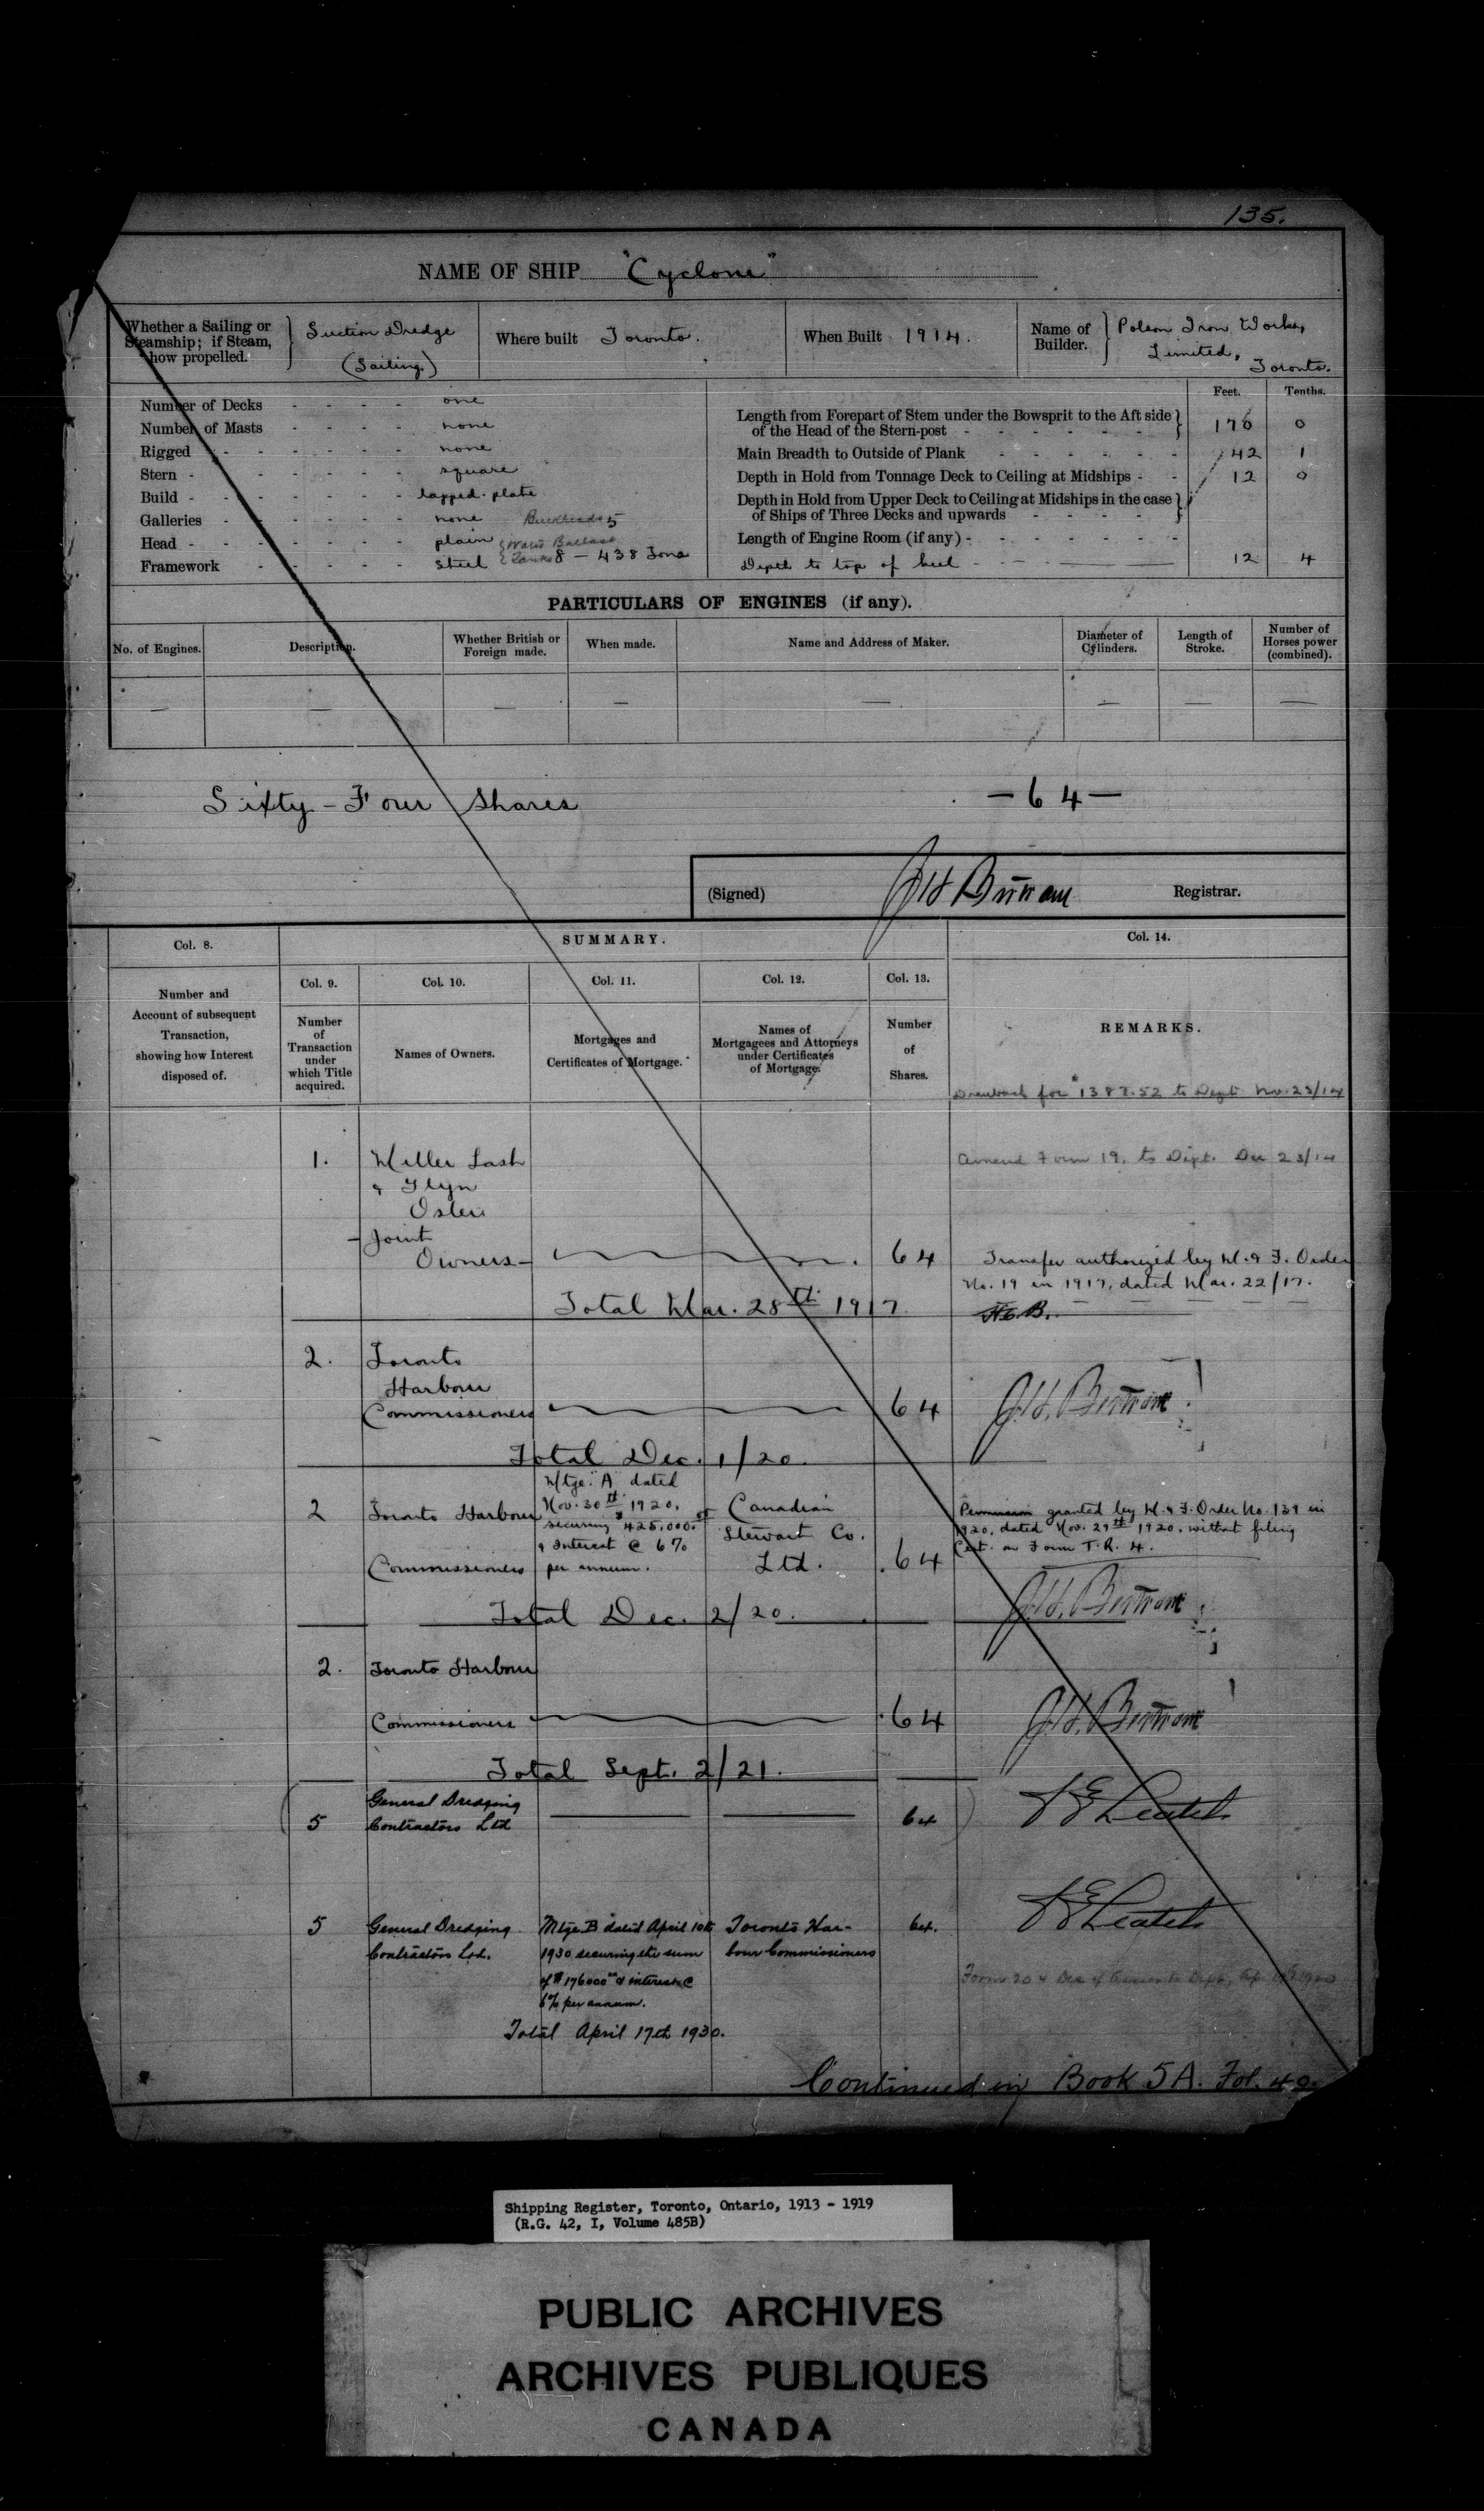 135.
NAME OF SHIP "Cyclone"
Whether a Sailing or Steamship; if Steam, how propelled.
Suction Dredge
(Sailing.)
Where built Toronto.
When Built 1914.
Name of Builder.
Polson Iron Works,
Limited,
Toronto.
Feet. Tenths.
Number of Decks - - - - one
Number of Masts - - - - none
Rigged - - - - - none
Stern - - - - - - square
Build - - - - - - lapped-plate
Galleries - - - - - none Bulkheads 5
Head - - - - - - plain { Water Ballast
Framework - - - - steel { Tanks 8 — 438 Tons
Length from Forepart of Stem under the Bowsprit to the Aft side of the Head of the Stern-post - 176 0
Main Breadth to Outside of Plank 42 1
Depth in Hold from Tonnage Deck to Ceiling at Midships - 12 0
Depth in Hold from Upper Deck to Ceiling at Midships in the case of Ships of Three Decks and upwards
Length of Engine Room (if any) -
Depth to top of keel - 12 4
PARTICULARS OF ENGINES (if any).
No. of Engines. Description. Whether British or Foreign made. When made. Name and Address of Maker. Diameter of Cylinders. Length of Stroke. Number of Horses power (combined).
— — — — — — — —
Sixty-Four Shares — 64 —
(Signed) J H Bertram Registrar.
Col. 8. SUMMARY. Col. 14.
Col. 9. Col. 10. Col. 11. Col. 12. Col. 13.
Number and Account of subsequent Transaction, showing how Interest disposed of.
Number of Transaction under which Title acquired.
Names of Owners.
Mortgages and Certificates of Mortgage.
Names of Mortgagees and Attorneys under Certificates of Mortgage.
Number of Shares.
REMARKS.
Drawback for $1387.52 to Dept. Nov. 23/14
1. Miller Lash
& Glyn
Osler
- Joint
Owners - 64
Amend Form 19. to Dept. Dec 23/14
Transfer authorized by M. & F. Order
No. 19 in 1917, dated Mar. 22/17.
Total Mar. 28th 1917.
2. Toronto
Harbour
Commissioners 64
J.H. Bertram
Total Dec. 1/20.
2 Toronto Harbour
Commissioners
Mtge. "A" dated
Nov. 30th 1920.
securing $425,000.
& Interest @ 6%
per annum.
of Canadian
Stewart Co.
Ltd.
64
Permission granted by M. & F. Order No. 139 in
1920, dated Nov. 29th 1920. without filing
Cert. on Form T.R. 4.
J.H. Bertram
Total Dec. 2/20.
2. Toronto Harbour
Commissioners 64
J.H. Bertram
Total Sept. 2/21.
5 General Dredging
Contractors Ltd 64
5 General Dredging
Contractors Ltd.
Mtge. B dated April 10th
1930 securing the sum
of $176000 00 & interest @
6% per annum.
Toronto Har-
bour Commissioners
64.
Total April 17th 1930.
Continued in Book 5A. Fol. 40.
Shipping Register, Toronto, Ontario, 1913 - 1919
(R.G. 42, I, Volume 485B)
PUBLIC ARCHIVES
ARCHIVES PUBLIQUES
CANADA